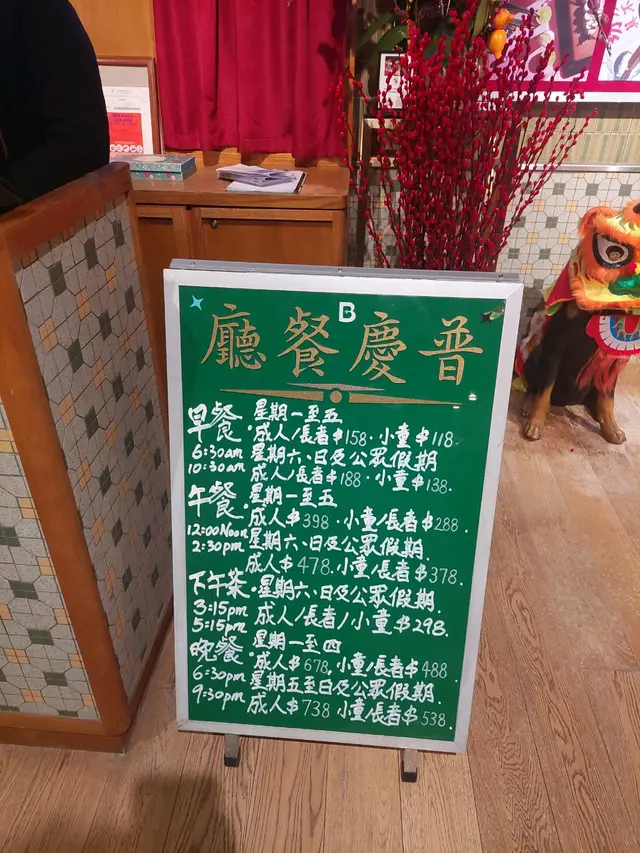 B
廳餐慶普
早餐 星期一至五
·成人/長者$158·小童$118.
6:30am 星期六、日及公眾假期
10:30am 成人/長者$188·小童$138.
午餐·星期一至五
成人$398·小童/長者$288.
12:00Noon 星期六、日及公眾假期.
2:30pm 成人$478.小童/長者$378.
下午茶·星期六、日及公眾假期.
3:15pm 成人/長者/小童$298.
5:15pm
晚餐 星期一至四
·成人$678,小童/長者$488
6:30pm 星期五至日及公眾假期.
9:30pm 成人$738 小童/長者$538.